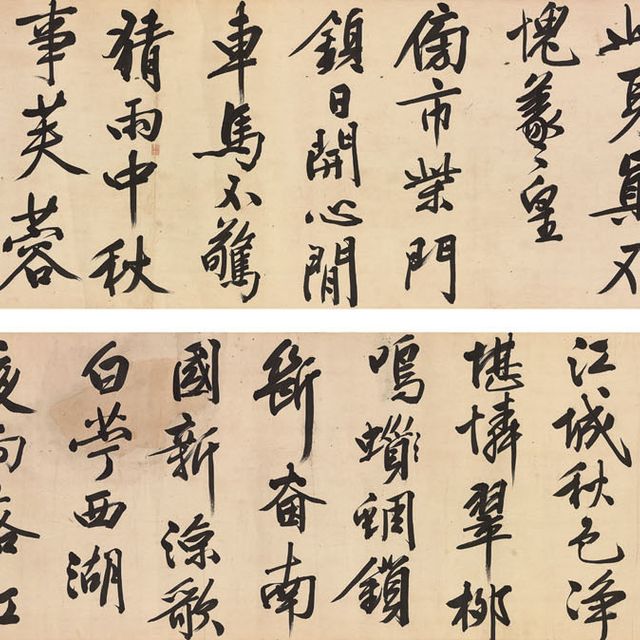 身真不
愧羲皇
傍市柴門
鎖日開心閒
車馬不驚
猜雨中秋
事芙蓉
江城秋色淨
堪憐翠柳
鳴蜩鎖
斷南
國新涼歌
白苧西湖